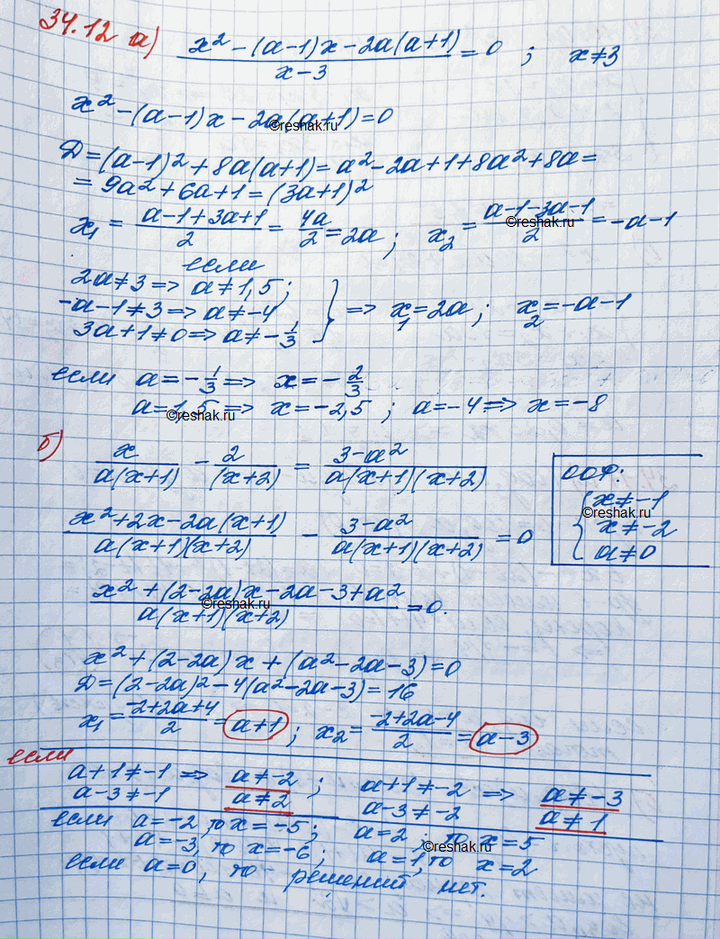 34.12 а) (x² - (a-1)x - 2a(a+1))/(x-3) = 0 ; x≠3
x² - (a-1)x - 2a(a+1) = 0
©reshak.ru
Д = (a-1)² + 8a(a+1) = a² - 2a + 1 + 8a² + 8a =
= 9a² + 6a + 1 = (3a+1)²
x₁ = (a-1+3a+1)/2 = 4a/2 = 2a ; x₂ = (a-1-3a-1)/2 = -a-1
©reshak.ru
если
2a≠3 => a≠1,5 ;
-a-1≠3 => a≠-4 } => x₁ = 2a ; x₂ = -a-1
3a+1≠0 => a≠-1/3
если a = -1/3 => x = -2/3
a = 1,5 => x = -2,5 ; a = -4 => x = -8
©reshak.ru
б) x/(a(x+1)) - 2/(x+2) = (3-a²)/(a(x+1)(x+2))
ООФ:
{ x≠-1
x≠-2
a≠0
©reshak.ru
(x²+2x-2a(x+1))/(a(x+1)(x+2)) - (3-a²)/(a(x+1)(x+2)) = 0
(x²+(2-2a)x-2a-3+a²)/(a(x+1)(x+2)) = 0.
©reshak.ru
x² + (2-2a)x + (a²-2a-3) = 0
Д = (2-2a)² - 4(a²-2a-3) = 16
x₁ = (-2+2a+4)/2 = a+1 ; x₂ = (-2+2a-4)/2 = a-3
если
a+1≠-1 => a≠-2 ; a+1≠-2 => a≠-3
a-3≠-1 a≠2 a-3≠-2 a≠1
если a=-2, то x=-5 ; a=2, то x=5
a=-3, то x=-6 ; a=1, то x=2
©reshak.ru
если a=0, то решений нет.